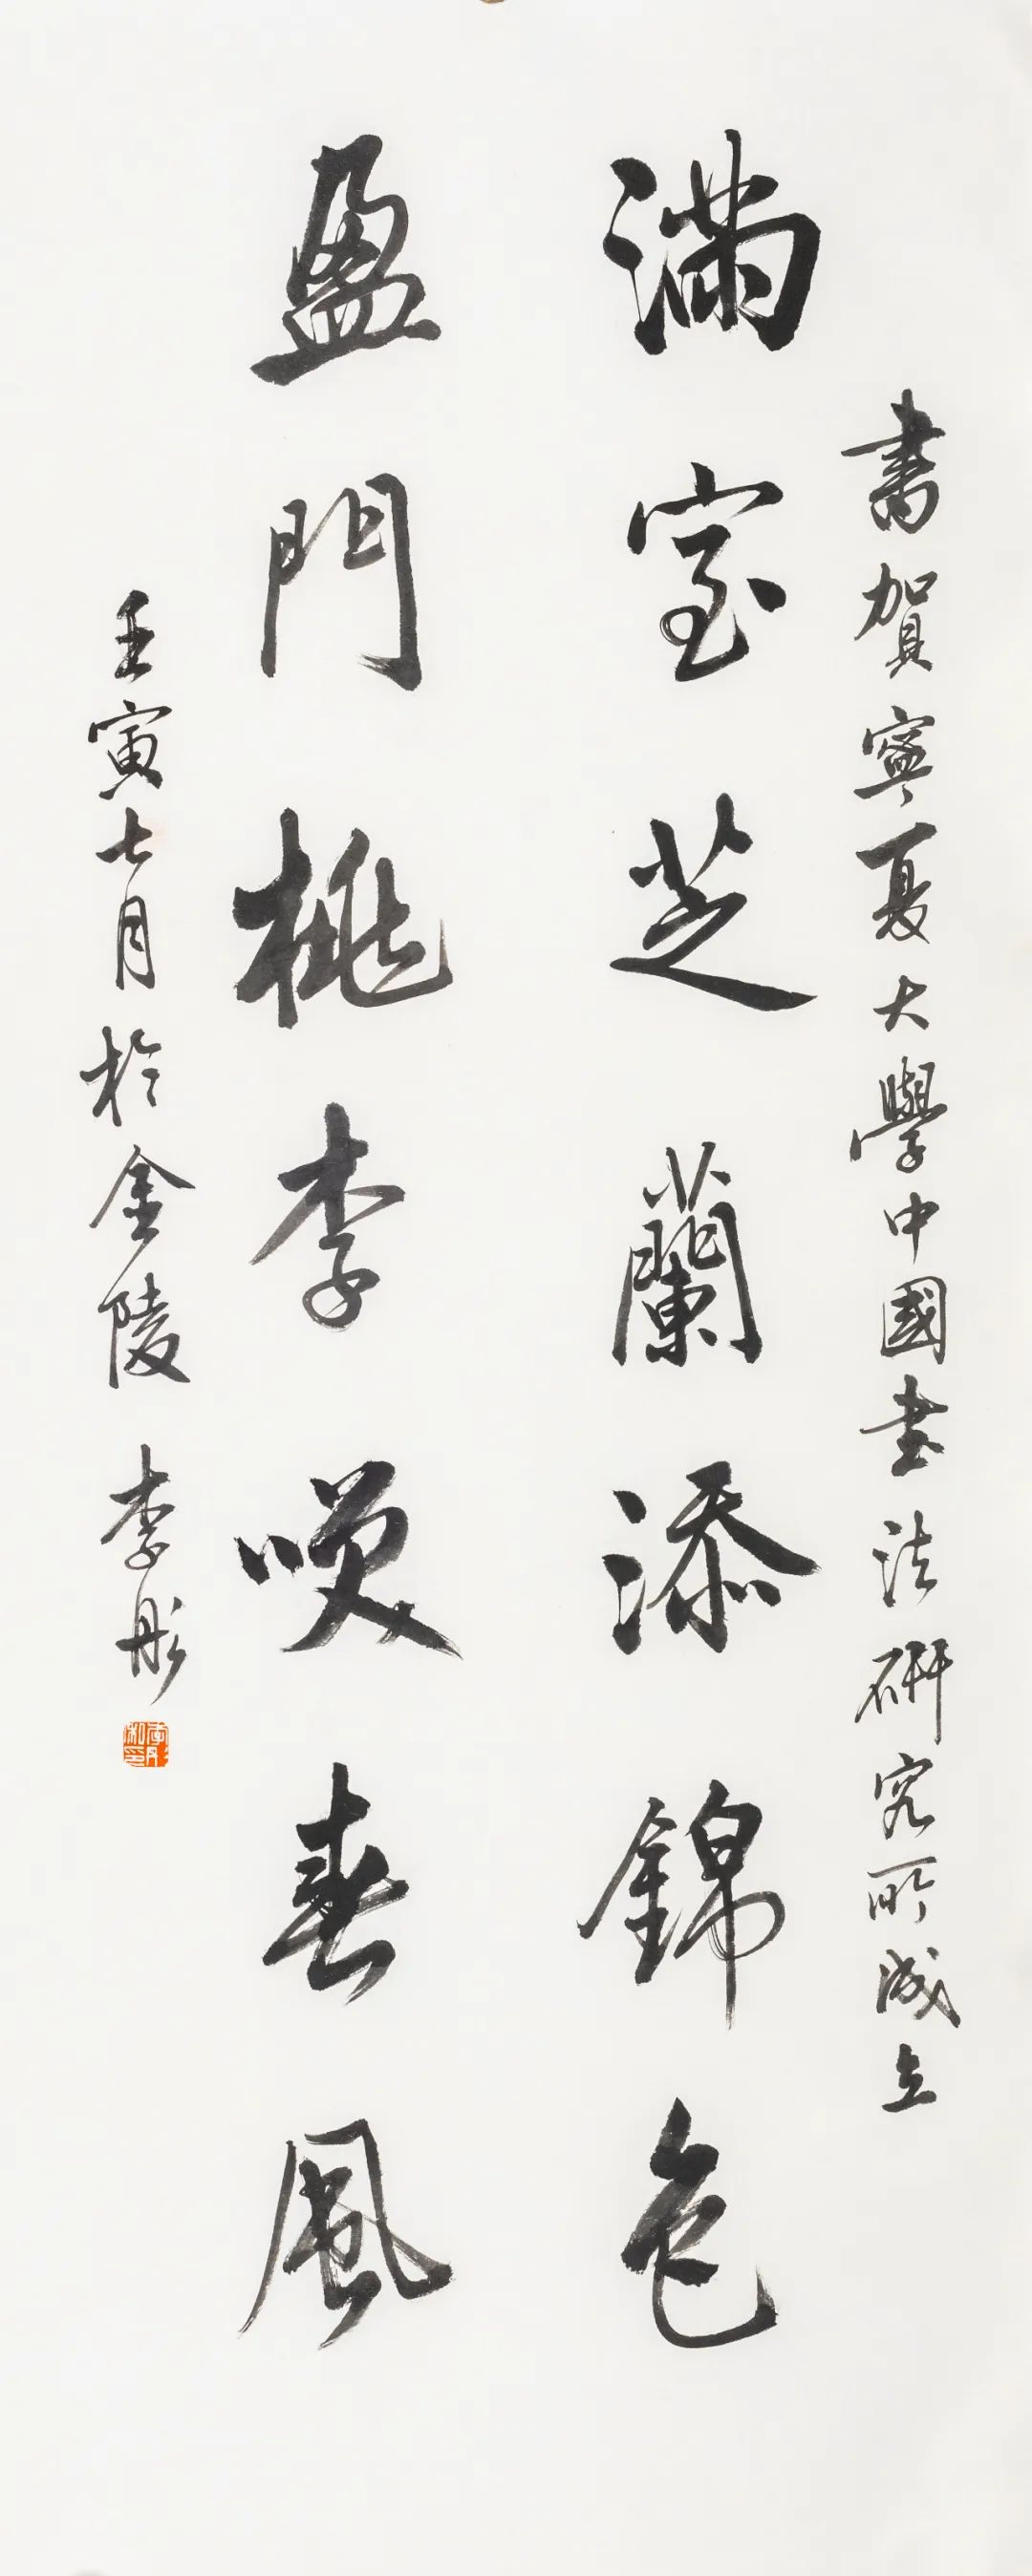 書賀寧夏大學中國書法研究所成立
滿室芝蘭添錦色
盈門桃李咲春風
壬寅七月於金陵 李彤
李彤私印